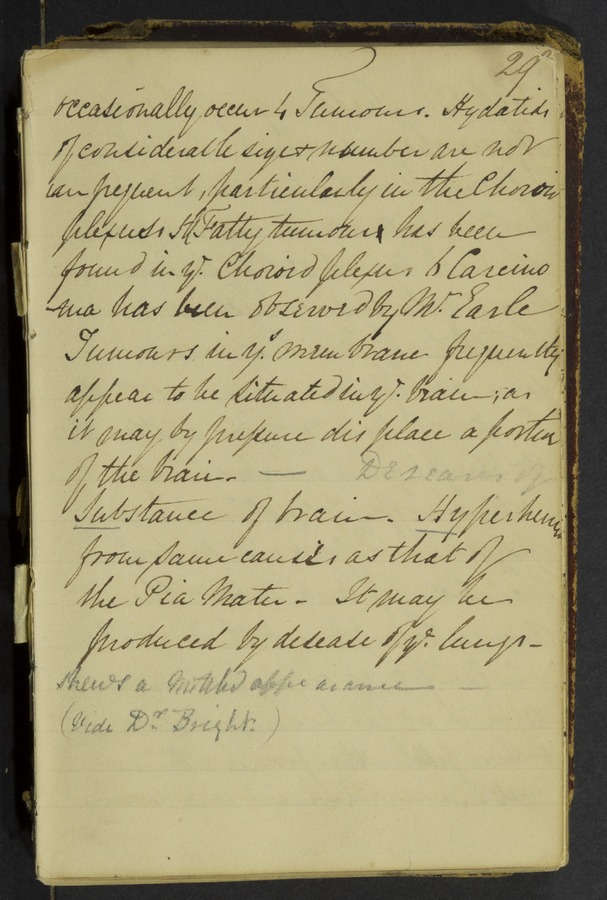 29
occasionally occur 4 Tumours. Hydatids
of considerable size & number are not
unfrequent, particularly in the Choroid
plexus. Fatty tumour has been
found in ye. Choroid plexus 6 Carcino
-ma has been observed by Mr. Earle
Tumours in ye. membrane frequently
appear to be situated in ye. brain, as
it may by pressure displace a portion
of the brain. — Diseases of
Substance of brain. Hyperhemia
from same causes as that of
the Pia Mater - It may be
produced by disease of ye. lungs -
Shews a Mottled appearance —
(Vide Dr. Bright.)